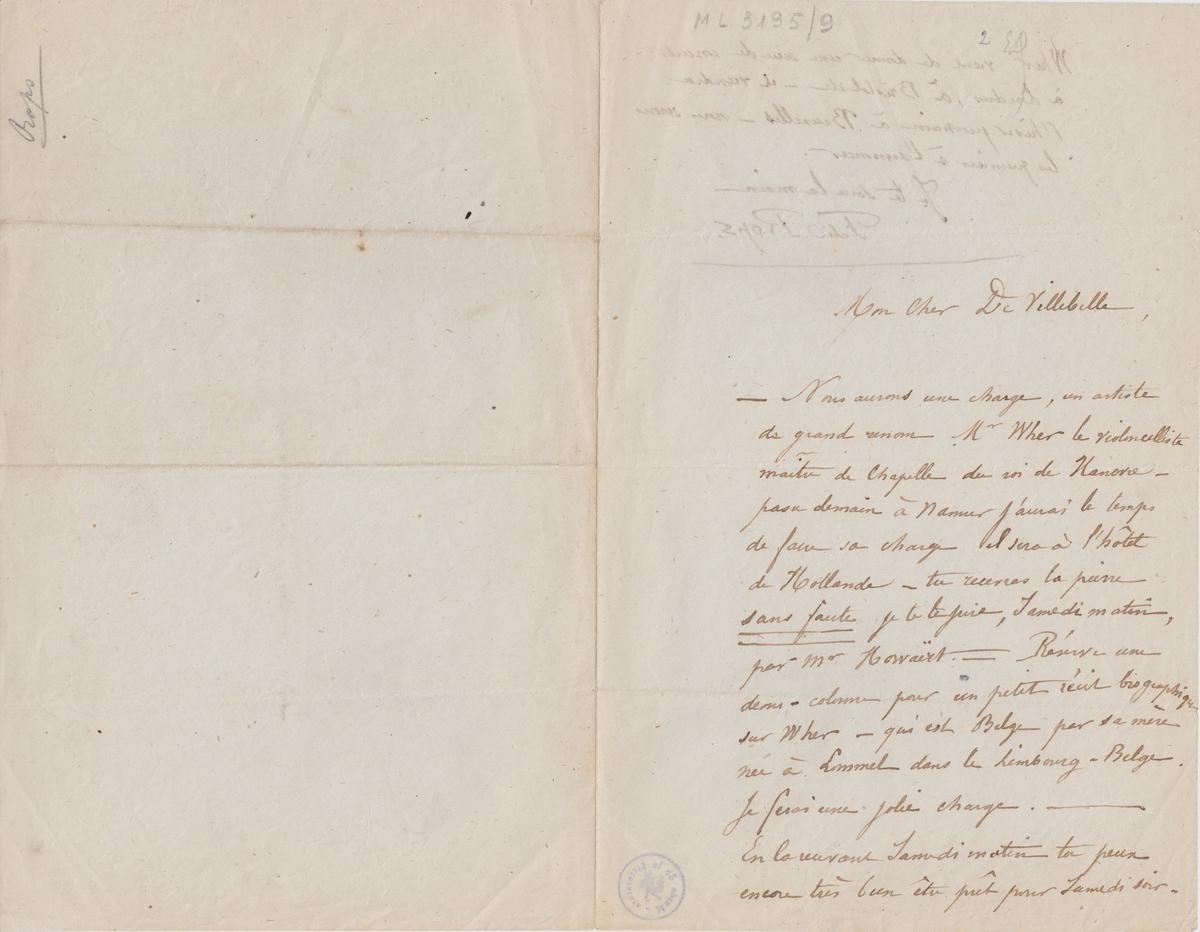 Rops
ML 3195/9
2
Wher vient de donner une série de concerts
à Londres, à Bristol etc – il viendra
l'hiver prochain à Bruxelles – nous serons
les premiers à l'annoncer.
Je te serre la main –
Félicien Rops.
Mon Cher De Villebelle,
— Nous aurons une charge, un artiste
de grand renom Mr Wher le violoncelliste
maître de Chapelle du roi de Hanovre –
passe demain à Namur j'aurai le temps
de faire sa charge il sera à l'hôtel
de Hollande – tu recevras la pierre
sans faute je te le jure, Samedi matin,
par Mr Howaërt. — Réserve une
demi-colonne pour un petit récit biographique
sur Wher – qui est Belge par sa mère
née à Lommel dans le Limbourg-Belge.
Je ferai une jolie charge. —
En la recevant Samedi matin tu peux
encore très bien être prêt pour Samedi soir –